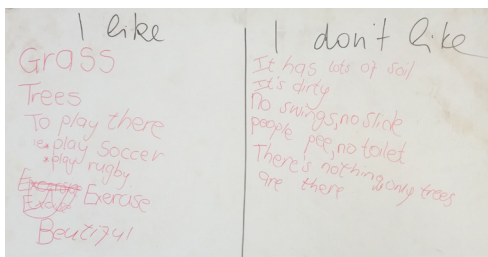 I like
Grass
Trees
To play there
play soccer
play rugby
Exeruse
Beutiful
I don't like
It has lots of soil
It's dirty
No swings, no slide
people pee, no toilet
There's nothing, only trees
are there